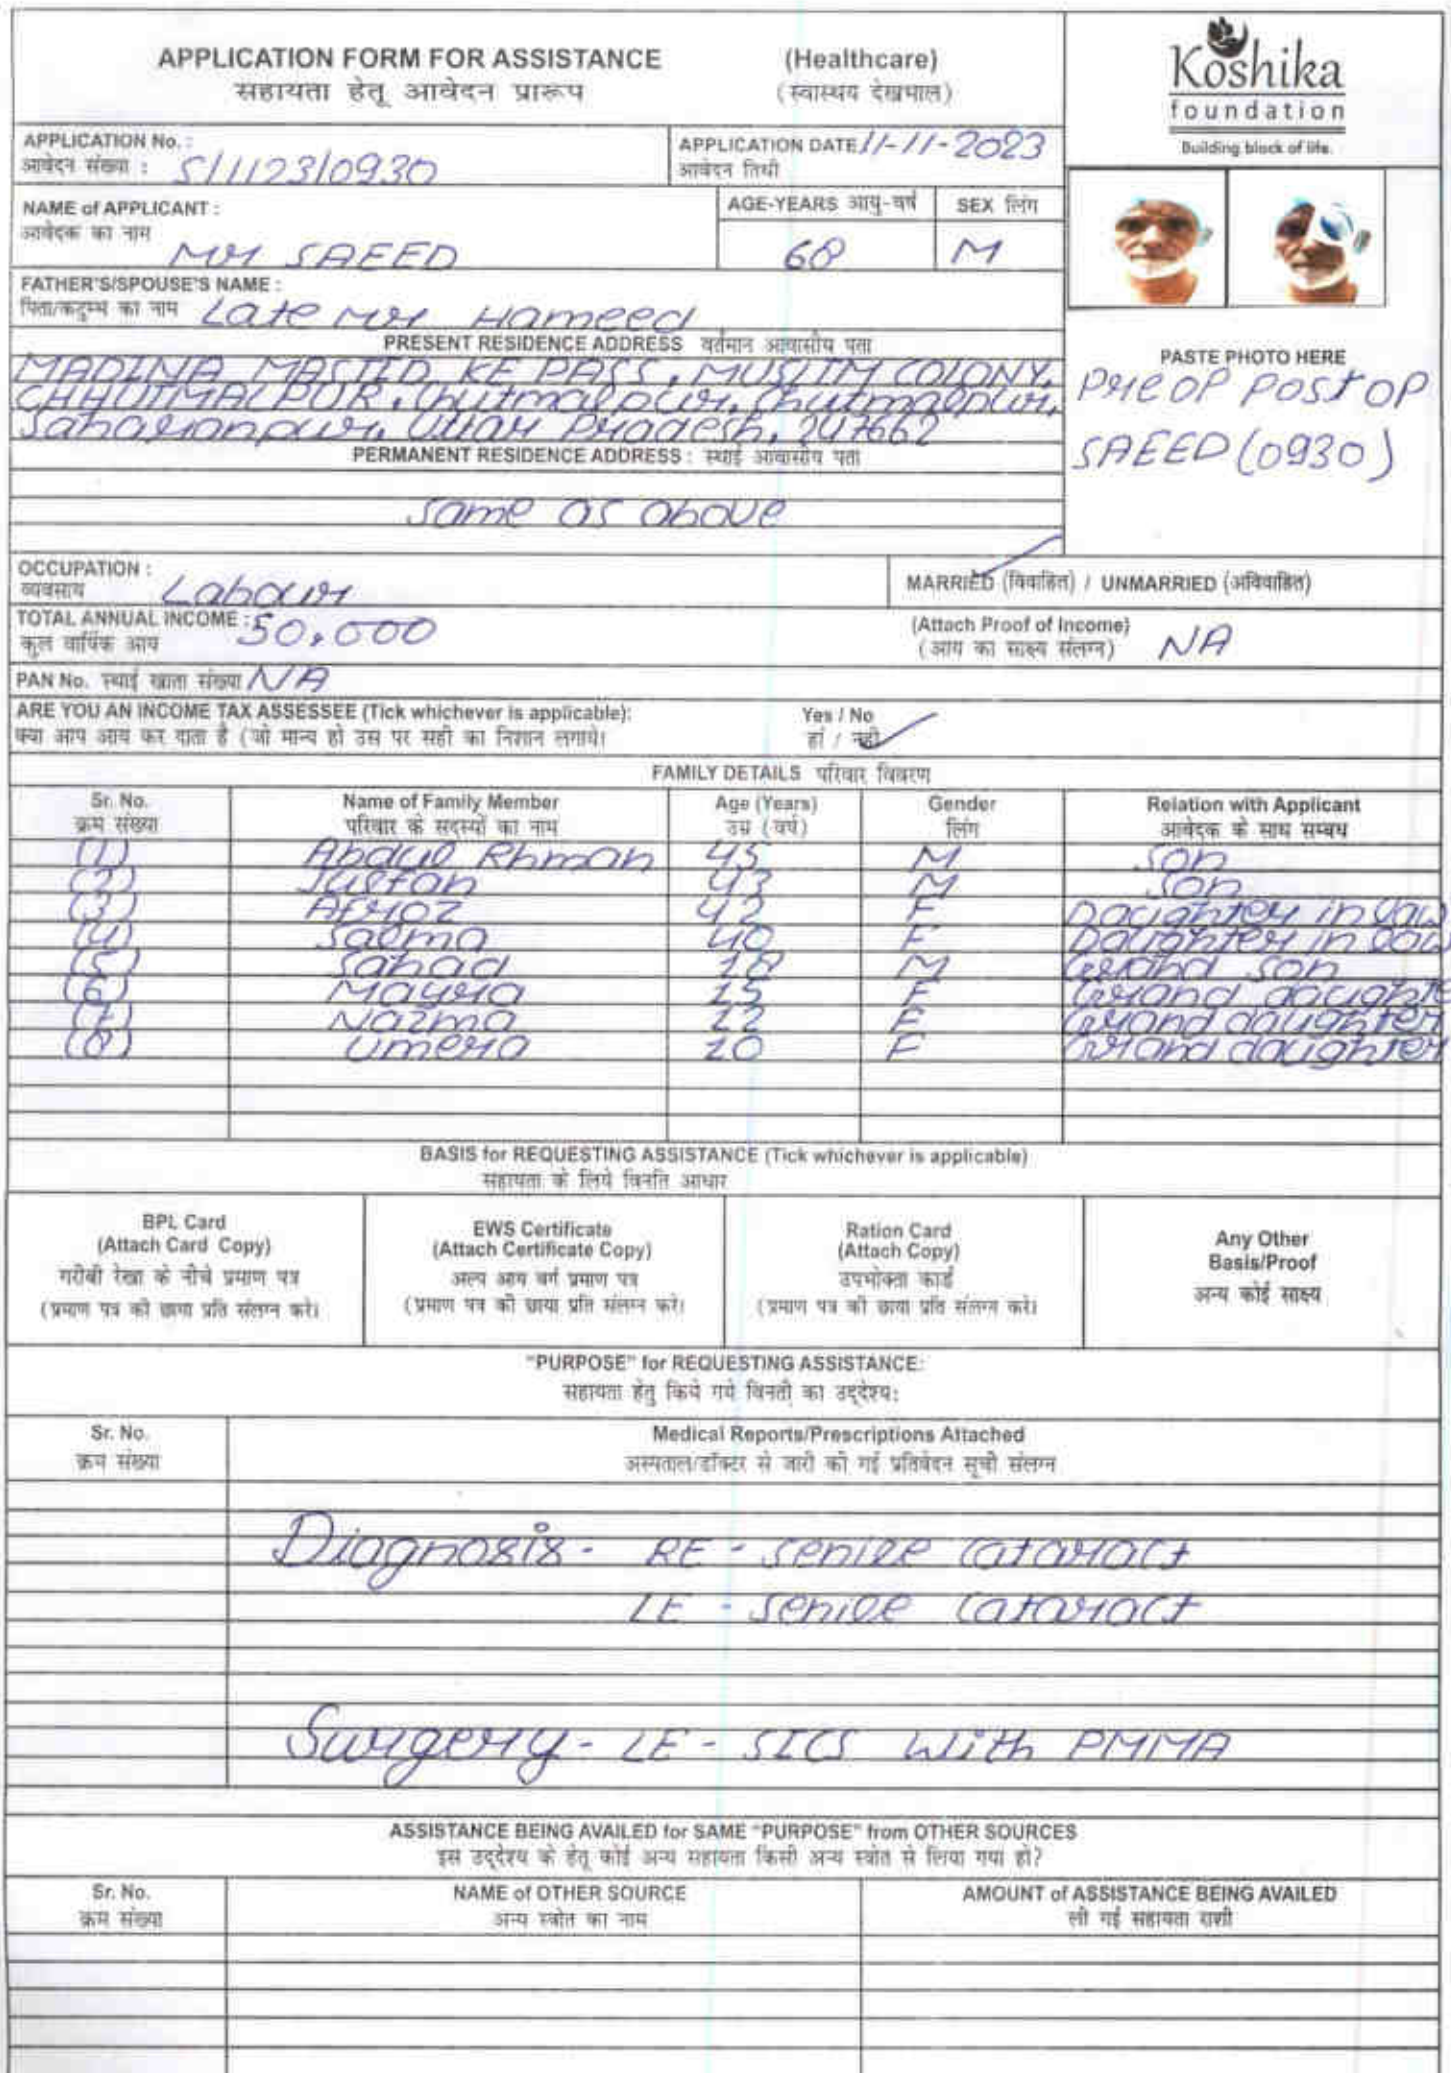 APPLICATION FORM FOR ASSISTANCE (Healthcare)
सहायता हेतू आवेदन प्रारूप (स्वास्थय देखभाल)
Koshika
foundation
Building block of life.
APPLICATION No. :
आवेदन संख्या : S/1123/0930
APPLICATION DATE 11-11-2023
आवेदन तिथी
NAME of APPLICANT :
आवेदक का नाम
Mr SAEED
AGE-YEARS आयु-वर्ष
68
SEX लिंग
M
FATHER'S/SPOUSE'S NAME :
पिता/कटुम्ब का नाम Late Mr Hameed
PRESENT RESIDENCE ADDRESS वर्तमान आवासीय पता
MADINA MASJID KE PASS, MUSLIM COLONY,
CHHUTMALPUR, Chutmalpur, Chutmalpur,
Saharanpur, Uttar Pradesh, 247662
PASTE PHOTO HERE
Pre OP Post OP
SAEED (0930)
PERMANENT RESIDENCE ADDRESS : स्थाई आवासीय पता
Same as above
OCCUPATION :
व्यवसाय Labour
MARRIED (विवाहित) / UNMARRIED (अविवाहित)
TOTAL ANNUAL INCOME : 50,000
कुल वार्षिक आय
(Attach Proof of Income)
(आय का साक्ष्य संलग्न) NA
PAN No. स्थाई खाता संख्या NA
ARE YOU AN INCOME TAX ASSESSEE (Tick whichever is applicable): Yes / No
क्या आप आय कर दाता है (जो मान्य हो उस पर सही का निशान लगाये। हां / नही
FAMILY DETAILS परिवार विवरण
Sr. No. Name of Family Member Age (Years) Gender Relation with Applicant
क्रम संख्या परिवार के सदस्यों का नाम उम्र (वर्ष) लिंग आवेदक के साथ सम्बध
(1) Abdul Rhman 45 M Son
(2) 43 M Son
(3) Afroz 42 F Daughter in law
(4) Salma 40 F Daughter in law
(5) Sahad 18 M Grand son
(6) Mayra 15 F Grand daughte
(7) Nazma 12 F Grand daughter
(8) Umera 10 F Grand daughter
BASIS for REQUESTING ASSISTANCE (Tick whichever is applicable)
सहायता के लिये विनति आधार
BPL Card
(Attach Card Copy)
गरीबी रेखा के नीचे प्रमाण पत्र
(प्रमाण पत्र की छाया प्रति संलग्न करे।
EWS Certificate
(Attach Certificate Copy)
अल्प आय वर्ग प्रमाण पत्र
(प्रमाण पत्र की छाया प्रति संलग्न करे।
Ration Card
(Attach Copy)
उपभोक्ता कार्ड
(प्रमाण पत्र की छाया प्रति संलग्न करे।
Any Other
Basis/Proof
अन्य कोई साक्ष्य
"PURPOSE" for REQUESTING ASSISTANCE:
सहायता हेतु किये गये विनती का उद्देश्य:
Sr. No. Medical Reports/Prescriptions Attached
क्रम संख्या अस्पताल/डॉक्टर से जारी की गई प्रतिवेदन सूची संलग्न
Diagnosis - RE - Senile Cataract
LE - Senile Cataract
Surgery - LE - SICS with PMMA
ASSISTANCE BEING AVAILED for SAME "PURPOSE" from OTHER SOURCES
इस उद्देश्य के हेतू कोई अन्य सहायता किसी अन्य स्त्रोत से लिया गया हो?
Sr. No. NAME of OTHER SOURCE AMOUNT of ASSISTANCE BEING AVAILED
क्रम संख्या अन्य स्त्रोत का नाम ली गई सहायता राशी